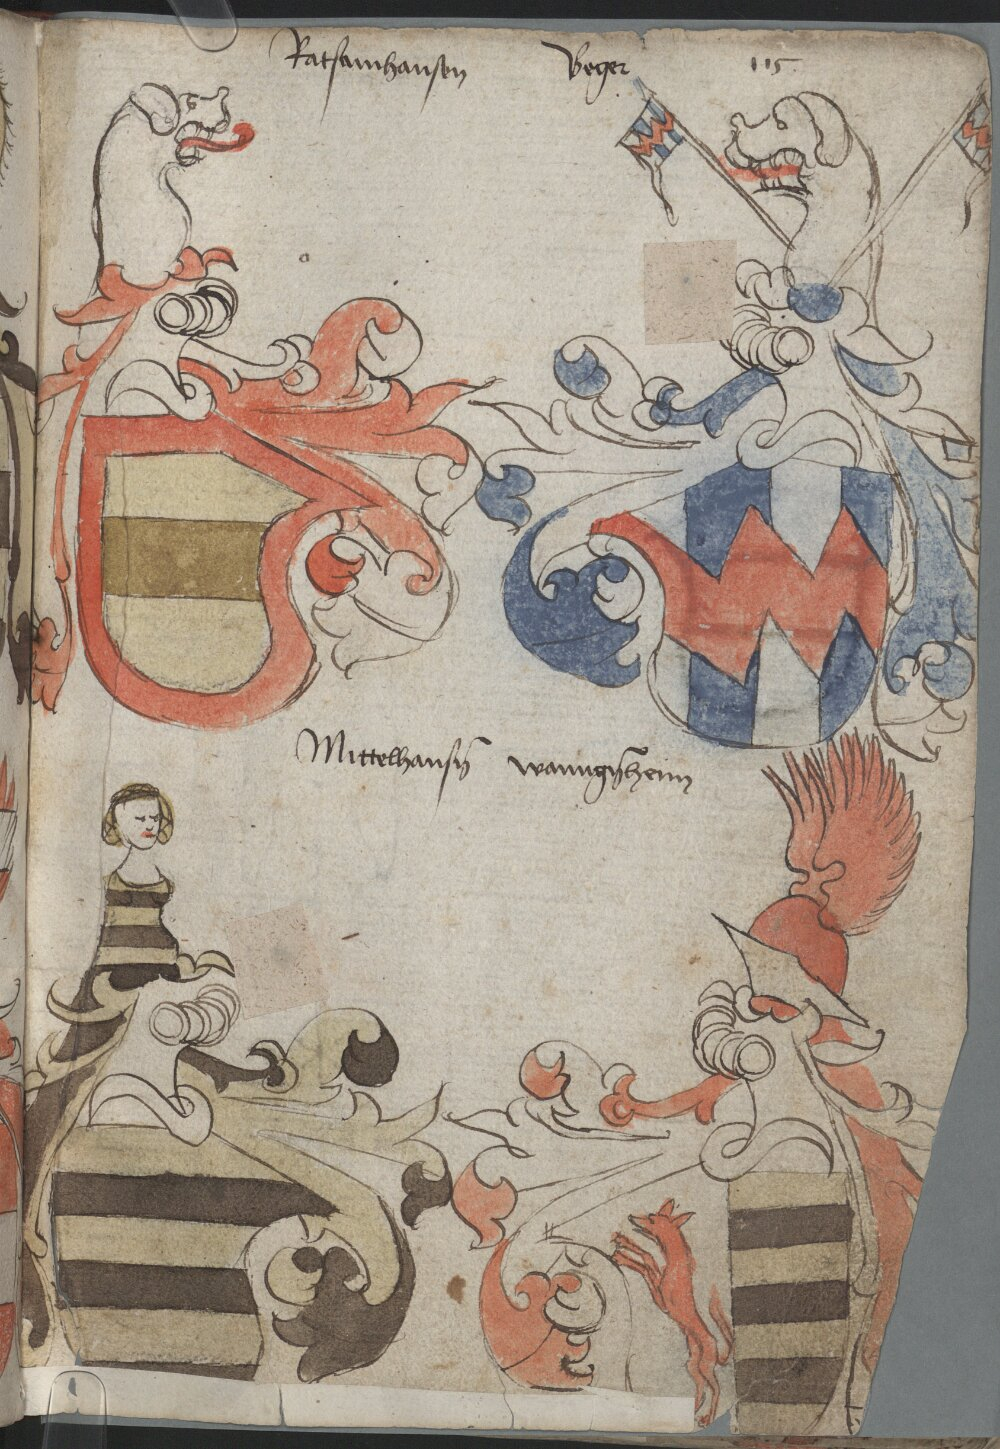 Ratsamhausen Beger 115
Mittelhausen wanngeßheim